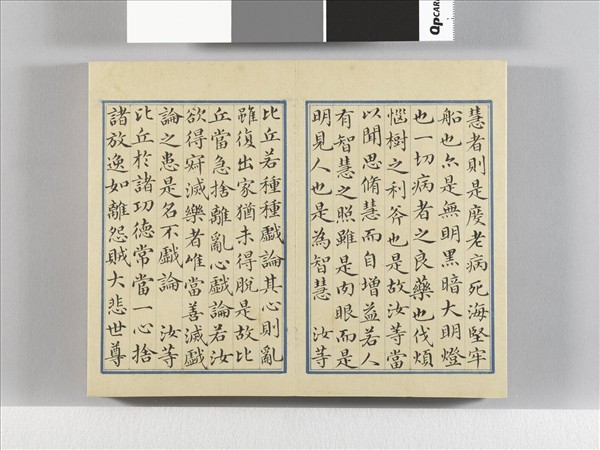 慧者則是度老病死海堅牢
船也亦是無明黑暗大明燈
也一切病者之良藥也伐煩
惱樹之利斧也是故汝等當
以聞思脩慧而自增益若人
有智慧之照雖是肉眼而是
明見人也是為智慧　汝等
比丘若種種戲論其心則亂
雖復出家猶未得脫是故比
丘當急捨離亂心戲論若汝
欲得寂滅樂者唯當善滅戲
論之患是名不戲論　汝等
比丘於諸功德常當一心捨
諸放逸如離怨賊大悲世尊
QpCARD